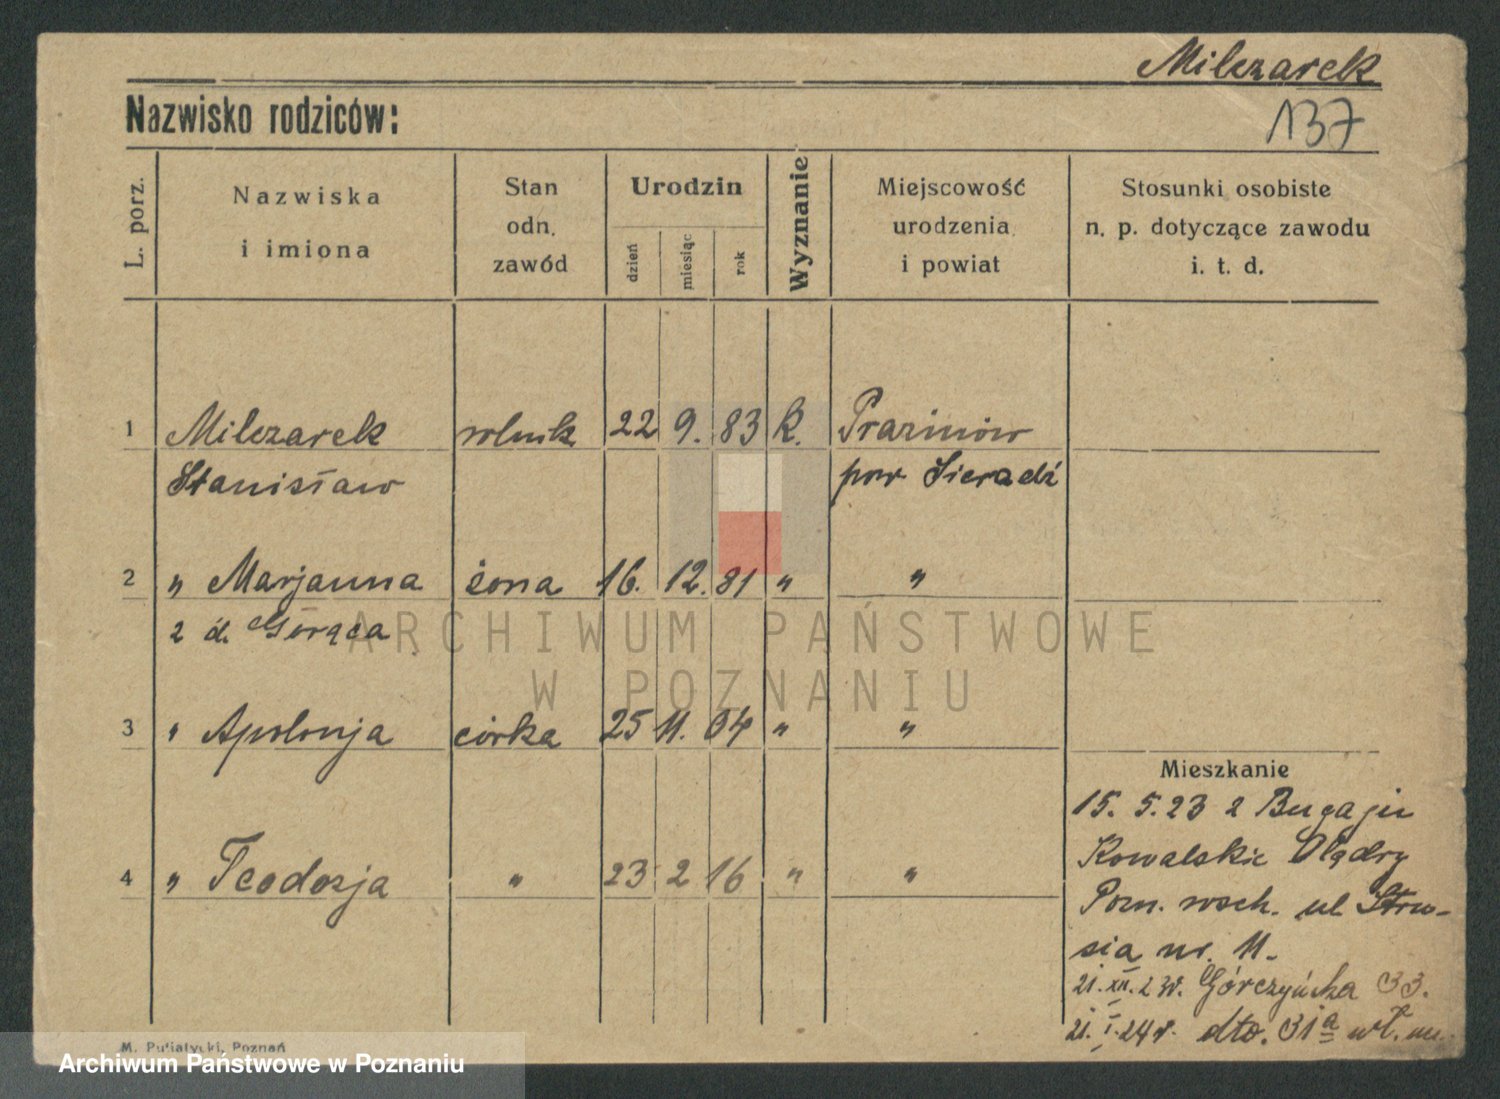 Milczarek
137
Nazwisko rodziców:
L. porz.
Nazwiska
i imiona
Stan
odn.
zawód
Urodzin
dzień
miesiąc
rok
Wyznanie
Miejscowość
urodzenia
i powiat
Stosunki osobiste
n. p. dotyczące zawodu
i. t. d.
1 Milczarek rolnik 22 9. 83 k.
Stanisław pow Sieradź
2 " Marjanna żona 16. 12. 81 " "
z d. Gorąca
3 " Apolonja córka 25 11. 04 " "
4 " Teodozja " 23 2 16 " "
Mieszkanie
15. 5. 23 z Bugaju
Kowalskie Olędry
Pozn. wsch. ul Stru-
sia nr. 11.
21. XII. 23r. Górczyńska 33.
21. I. 24r. dto. 31a wł. m.
ARCHIWUM PAŃSTWOWE
W POZNANIU
M. Putiatycki, Poznań
Archiwum Państwowe w Poznaniu